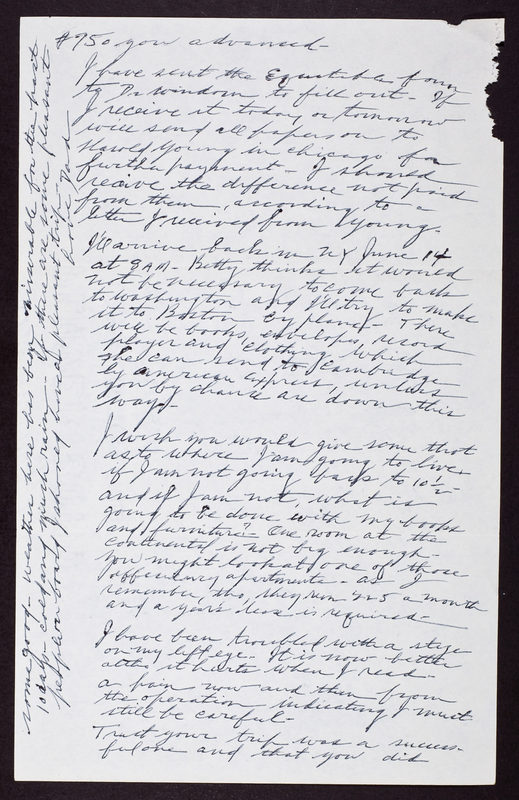 $950 you advanced—
I have sent the Equitable form
to Dr Windom to fill out. If
I receive it today or tomorrow
will send all papers on to
Harold Young in Chicago for
further payment— I should
receive the difference not paid
from them, according to a
letter I received from Young.
I'll arrive back in NY June 14
at 8 AM— Betty thinks it would
not be necessary to come back
to Washington and I'll try to make
it to Boston by plane— There
will be books, envelopes, record
player and clothing which
she can send to Cambridge
by American Express, unless
you by chance are down this
way—
I wish you would give some thot
as to where I am going to live
if I am not going back to 10½
and if I am not, what is
going to be done with my books
and furniture? One room at the
Continental is not big enough—
You might look at one of those
efficiency apartments— as I
remember, tho, they run 125 a month
and a year's lease is required—
I have been troubled with a stye
on my left eye. It is now better
altho it hurts when I read—
a pain now and then from
the operation indicating I must
still be careful—
Trust your trip was a success-
ful one and that you did
some good— weather here has been miserable for the past
10 days— cold and much rain— If there are some pleasant
people on board I should have a pleasant trip—
Love, Dad